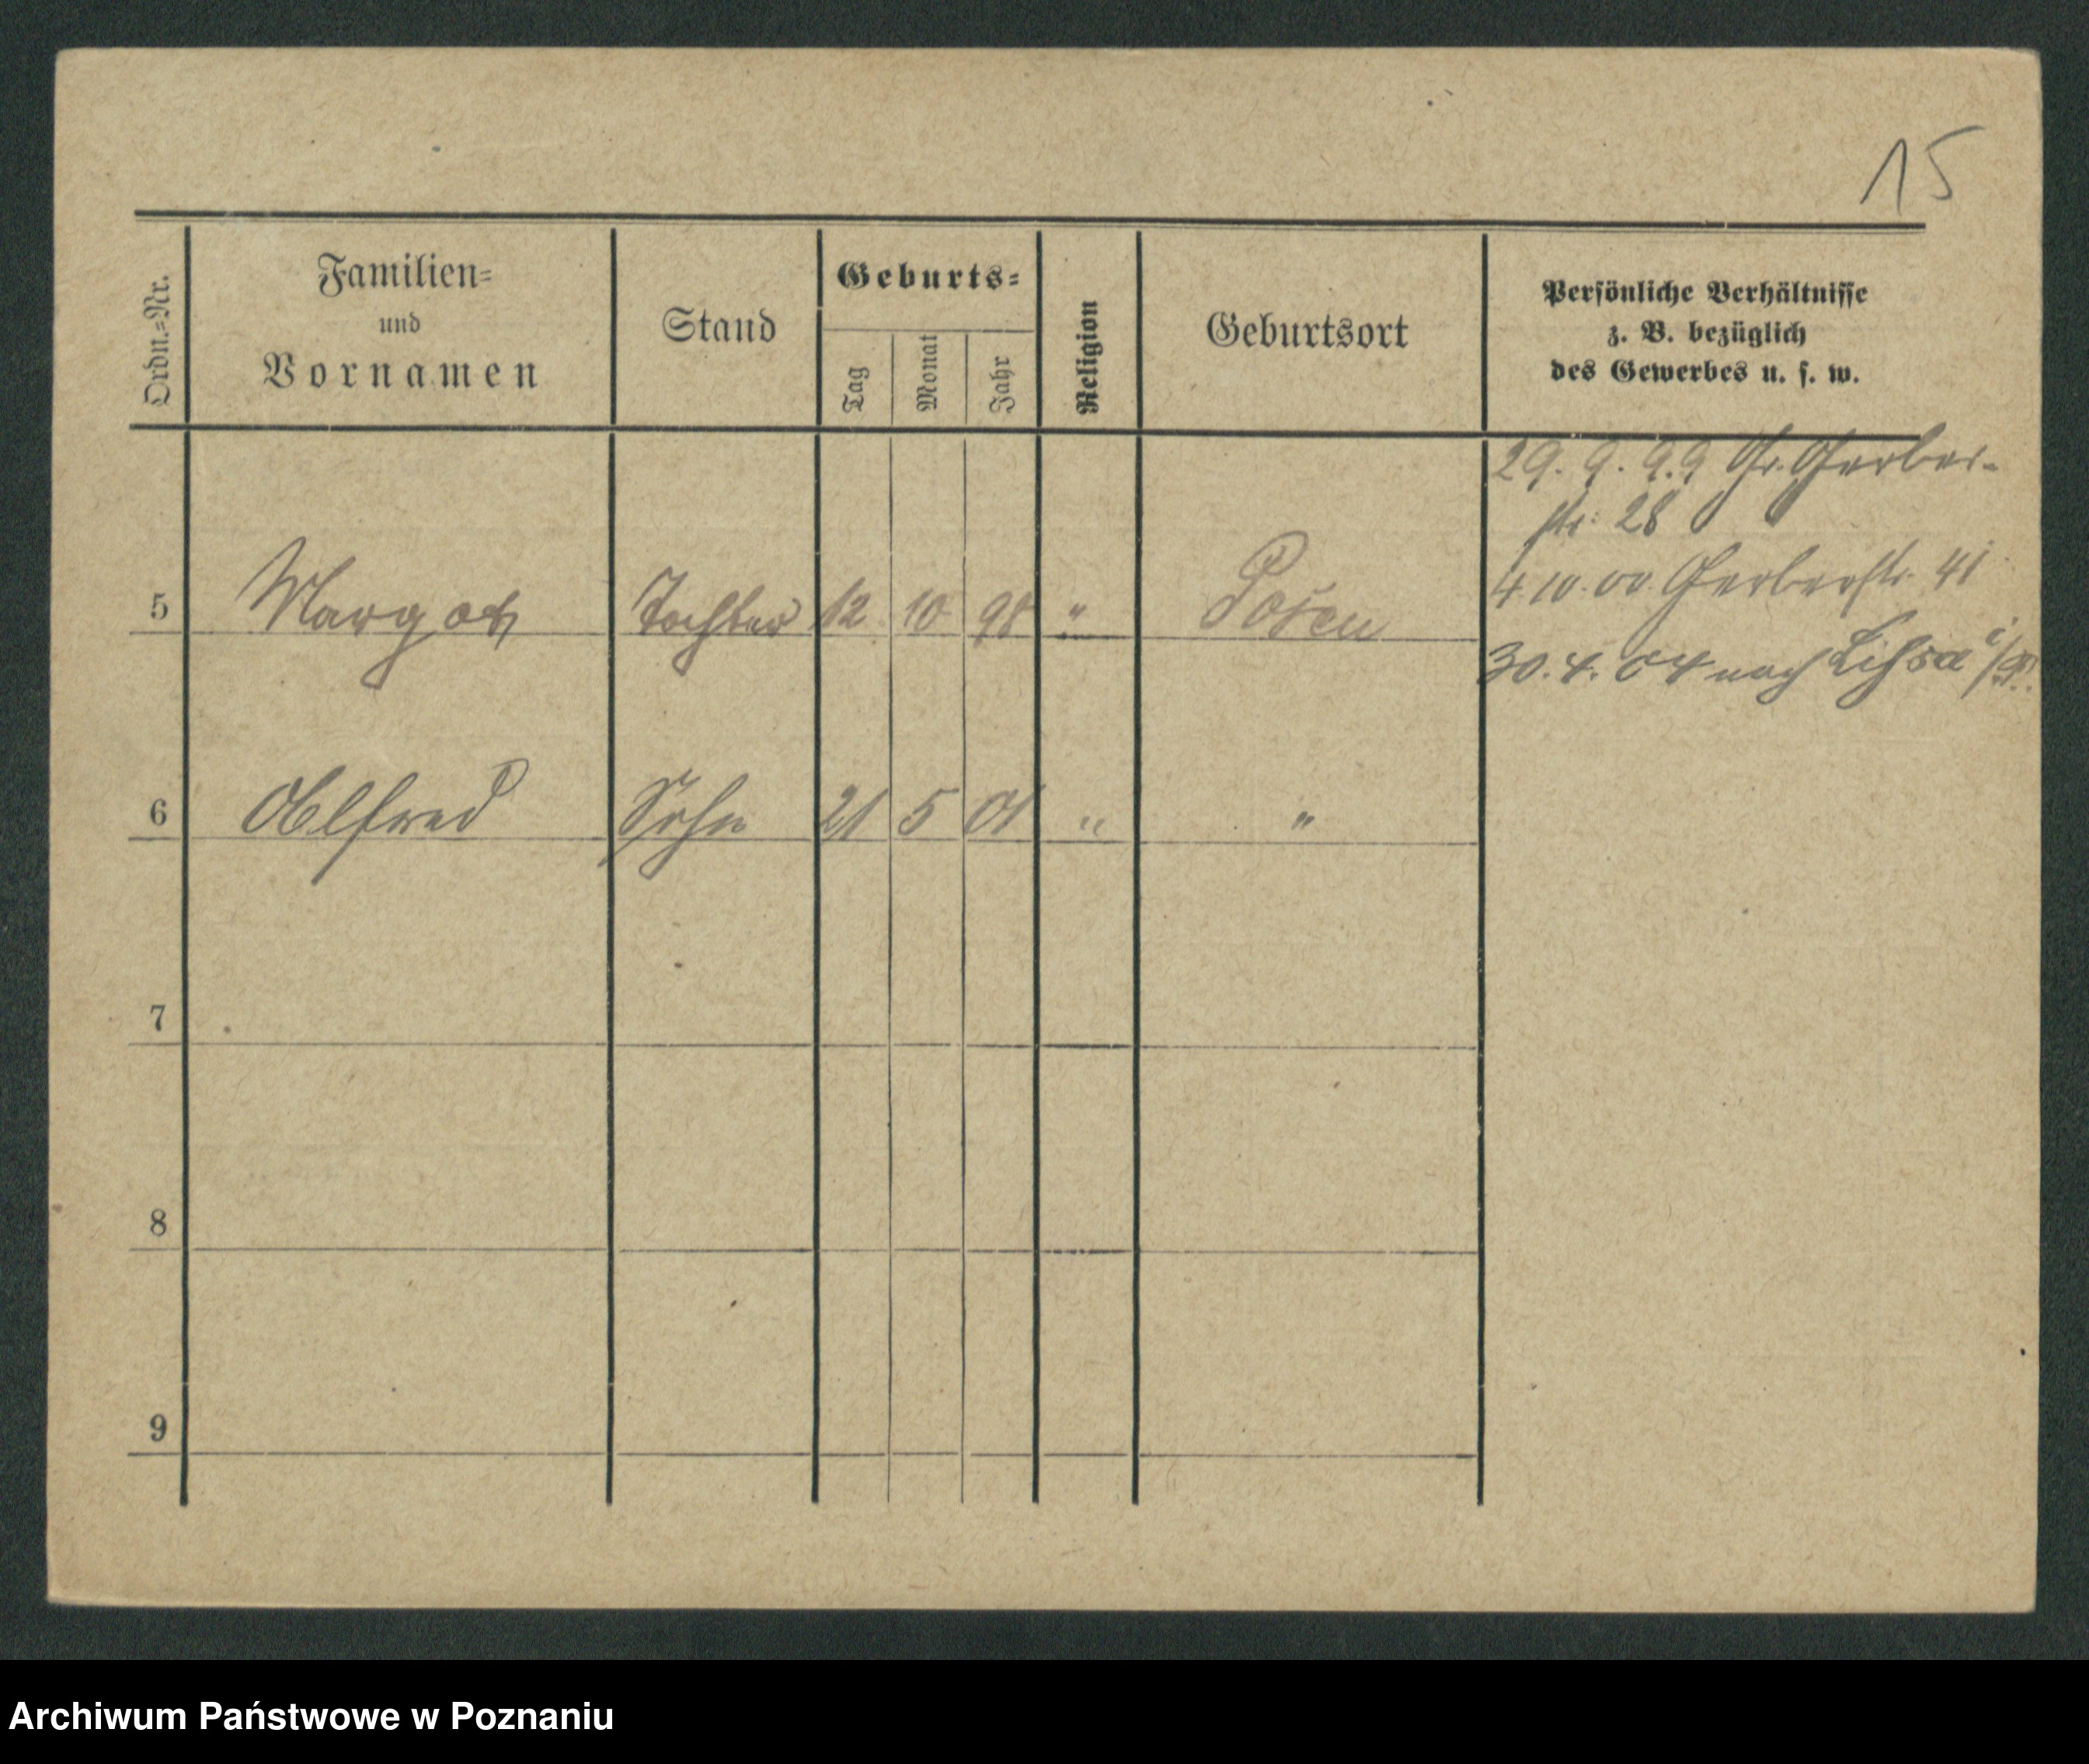 15
Ordn.=Nr.
Familien=
und
Vornamen
Stand
Geburts=
Tag
Monat
Jahr
Religion
Geburtsort
Persönliche Verhältnisse
z. B. bezüglich
des Gewerbes u. s. w.
29. 9. 99 Gr. Gerber-
str. 28
4 10. 00 Gerberstr. 41
5 Margot Tochter 12 10 98 " Posen
30. 4. 04 nach Lissa i/P.
6 Alfred Sohn 21 5 01 " "
7
8
9
Archiwum Państwowe w Poznaniu